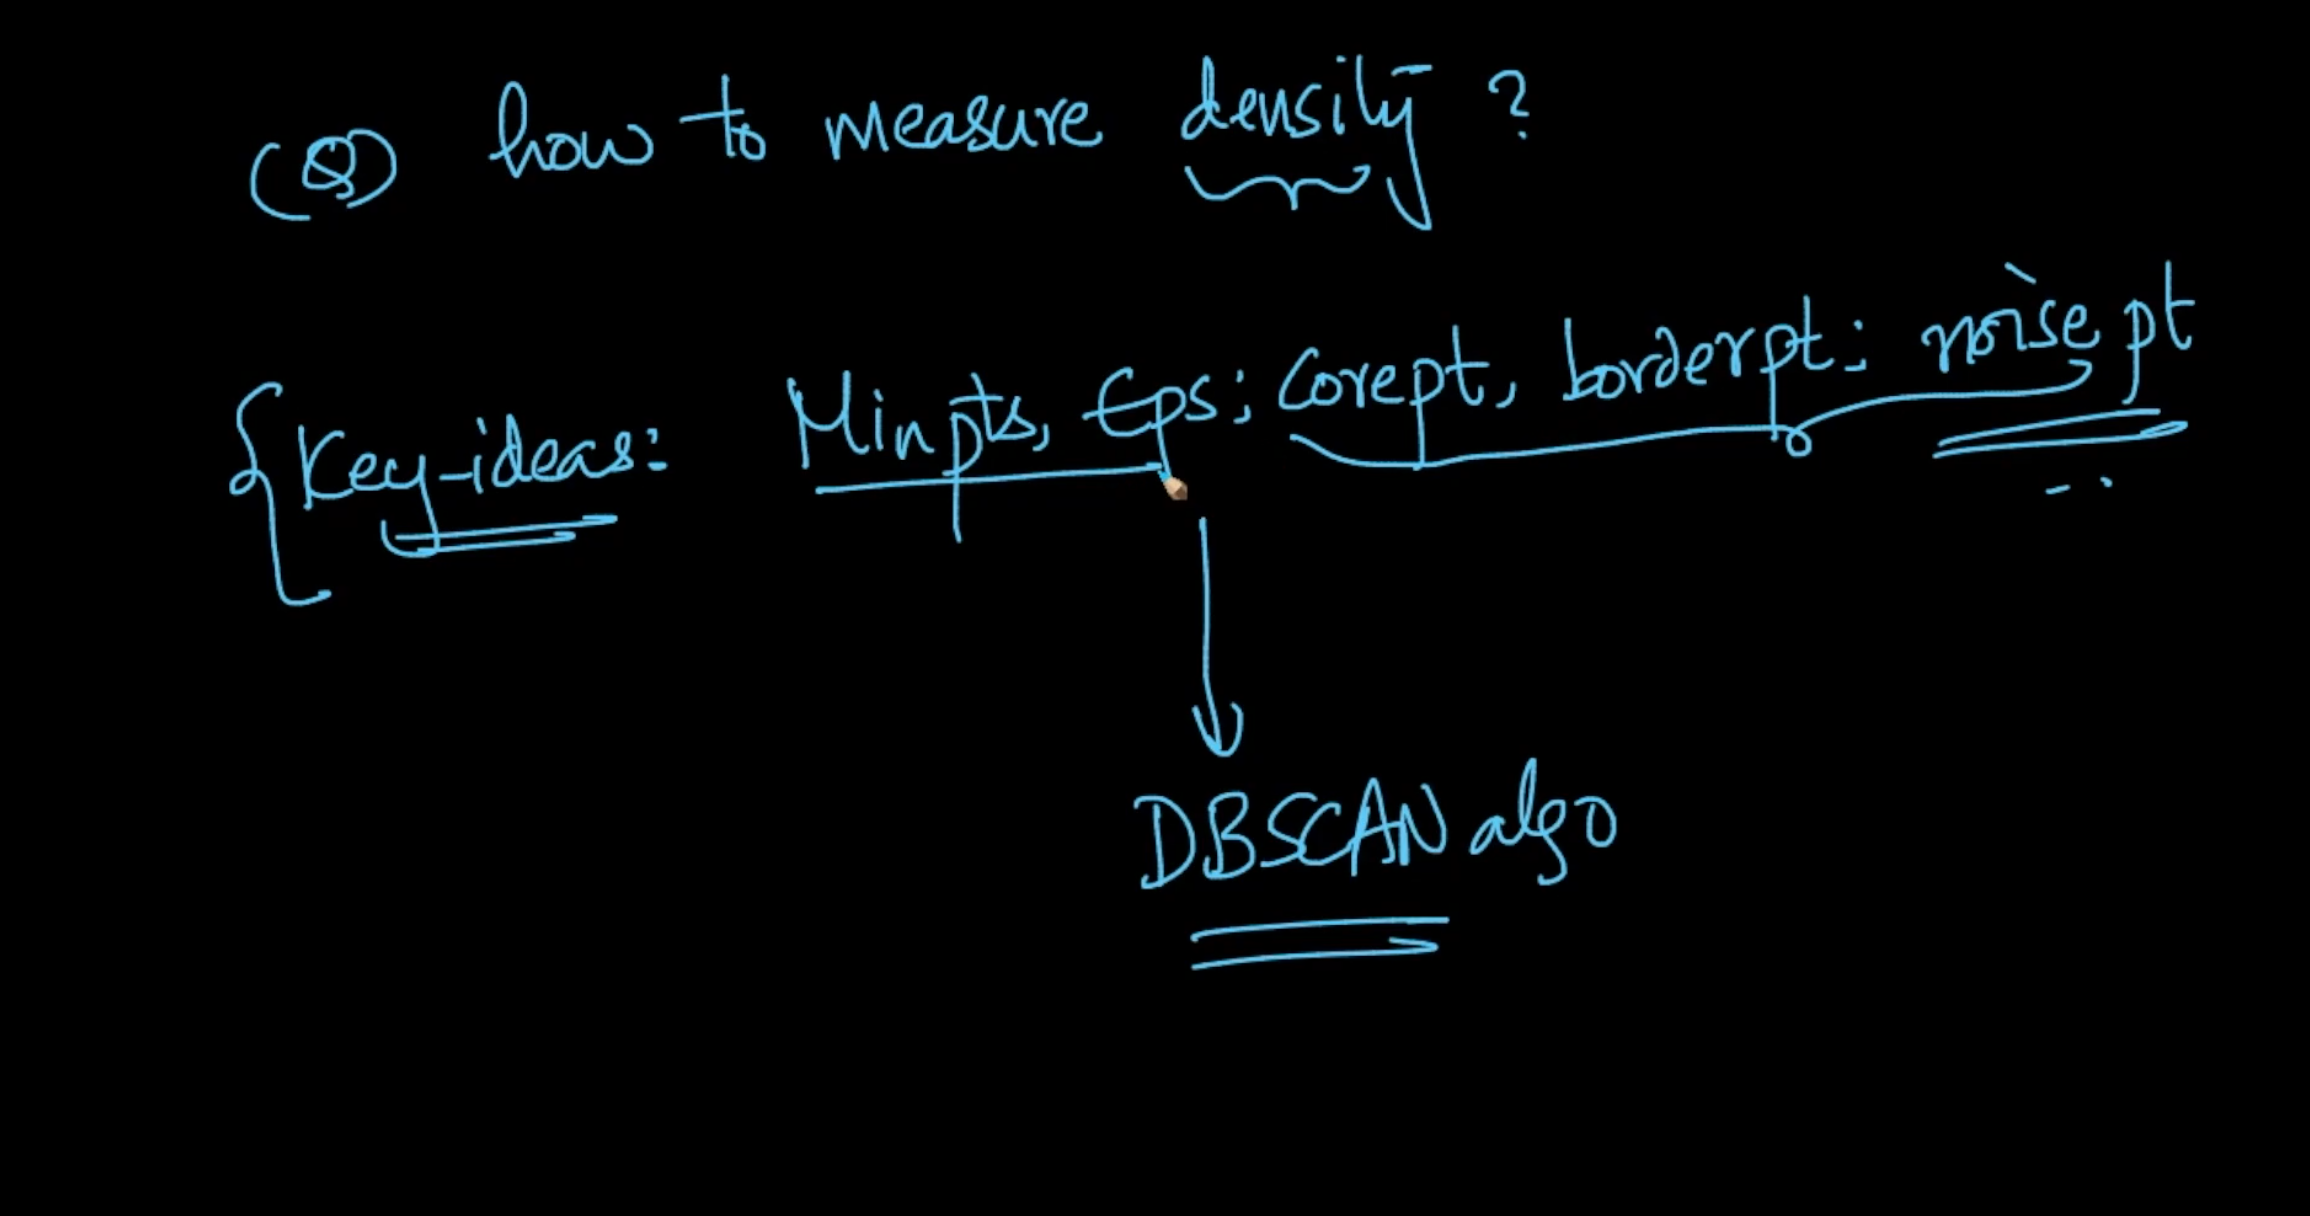 (Q) how to measure density ?
Key-ideas: Minpts, Eps; Corept, borderpt; noise pt
DBSCAN algo